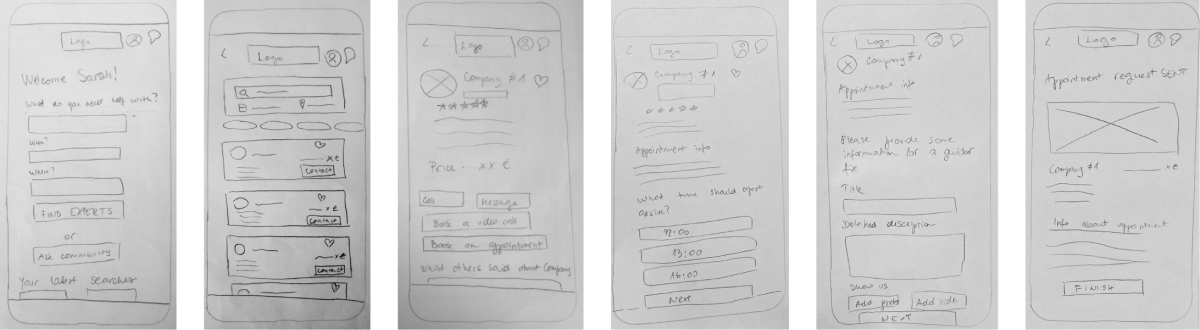 Logo
Welcome Sarah!
What do you need help with?
When?
Where?
FIND EXPERTS
or
Ask community
Your latest searches
Logo
xx €
Contact
xx €
Contact
xx €
Contact
Logo
Company #1
Price - xx €
Call
Message
Book a video call
Book an appointment
What others said about Company
Logo
Company #1
Appointment info
What time should expert
arrive?
12:00
13:00
16:00
Next
Logo
Company #1
Appointment info
Please provide some
information for a quicker
fix
Title
Detailed description
Show us
Add photo
Add video
NEXT
Logo
Appointment request SENT
Company #1
xx €
Info about appointment
FINISH